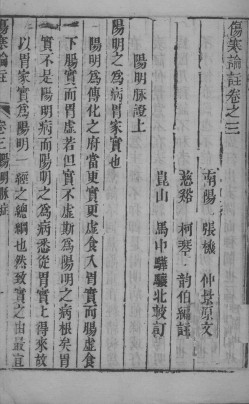 傷寒論註卷之三
南陽 張機 仲景原文
慈谿 柯琴 韻伯編註
崑山 馬中驊驤北較訂
陽明脉證上
陽明之爲病胃家實也
陽明爲傳化之府當更實更虛食入胃實而腸虛食
下腸實而胃虛若但實不虛斯爲陽明之病根矣胃
實不是陽明病而陽明之爲病悉從胃實上得來故
以胃家實爲陽明一經之總綱也然致實之由最宜
傷寒論註 卷三 陽明脉證